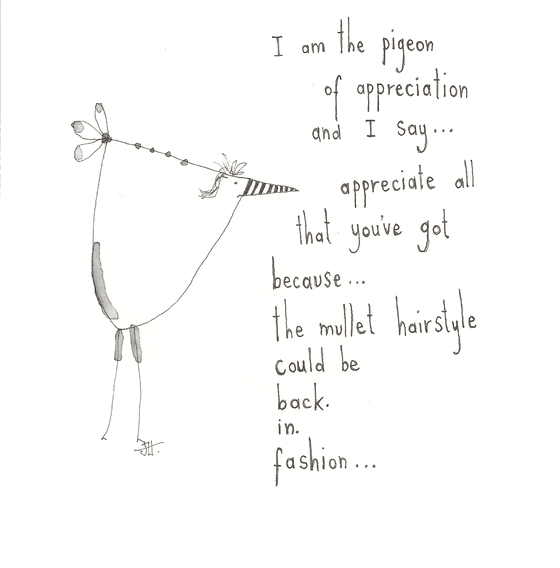 I am the pigeon
of appreciation
and I say...
appreciate all
that you've got
because...
the mullet hairstyle
could be
back.
in.
fashion...